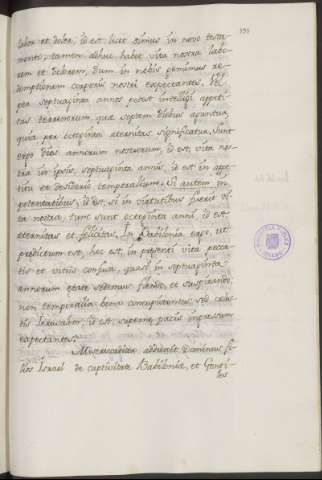 labor et dolor, id est licet simus in novo testa-
mento, tamen adhuc habet vita nostra labo-
rem et dolorem, dum in nobis gemimus re-
demptionem corporis nostri expectantes, Vel
per septuaginta annos potest intelligi appeti-
tus terrenorum, que septem diebus aguntur,
quia per octoginta aeternitas significatur, sunt
ergo dies annorum nostrorum, id est, vita nos-
tra in ipsis, septuaginta annis, id est in appe-
titu et desiderio temporalium. Si autem in
potentatibus, id est, si in virtutibus fuerit vi-
ta nostra, tunc sunt octoginta anni, id est
eternitas et felicitas. In Babilonia ergo, ut
predictum est, hoc est, in presenti vita pecca-
tis et vitiis confusa, quasi in septuaginta
annorum etate sedemus flendo, et suspirando,
non temporalia bona concupiscentes, sed celes-
tis Jerusalem, id est, superne pacis ingressum
expectantes.
Misericordia addidit Dominus fi-
lios Israel de captivitate Babilonia, et Genti-
les